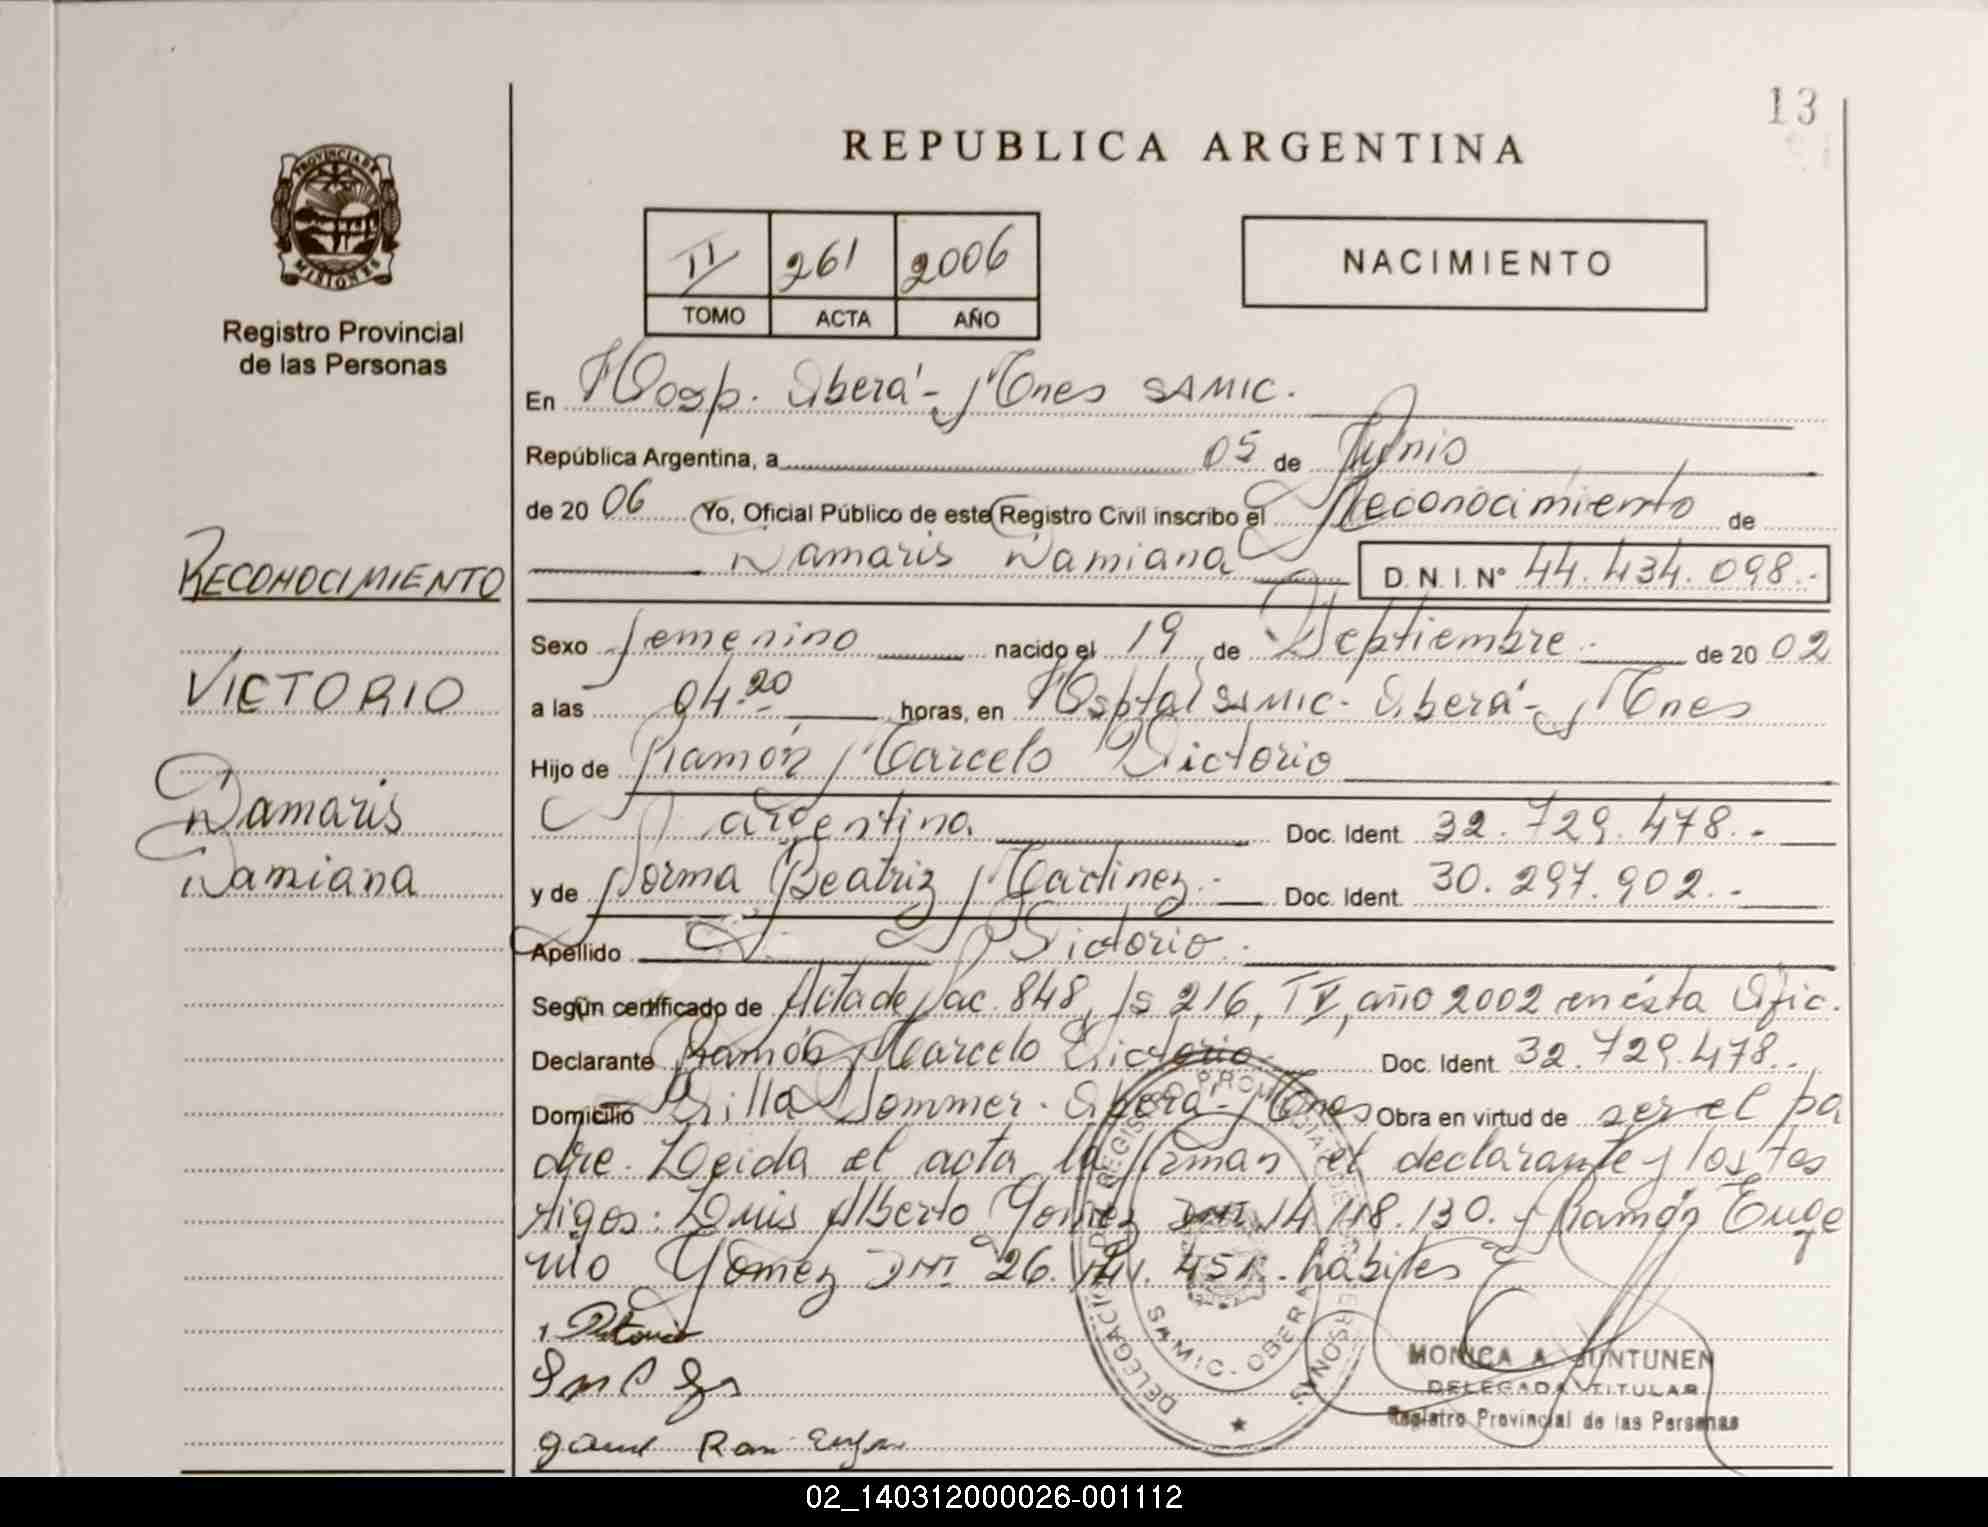 13
REPUBLICA ARGENTINA
PROVINCIA DE
MISIONES
Registro Provincial
de las Personas
II 261 2006
TOMO ACTA AÑO
NACIMIENTO
En Hosp. Oberá - Mnes SAMIC.
República Argentina, a 05 de Junio
de 20 06 Yo, Oficial Público de este Registro Civil inscribo el Reconocimiento de
Damaris Damiana D.N.I. N° 44.434.098.-
RECONOCIMIENTO
VICTORIO
Damaris
Damiana
Sexo femenino nacido el 19 de Septiembre de 20 02
a las 04.20 horas, en Hospital SAMIC - Oberá - Mnes
Hijo de Ramón Marcelo Victorio
argentina Doc. Ident. 32.729.478.-
y de Norma Beatriz Martinez.- Doc. Ident. 30.297.902.-
Apellido Victorio.
Según certificado de Acta de Nac. 848, fs 216, TV, año 2002 en ésta Ofic.
Declarante Ramón Marcelo Victorio Doc. Ident. 32.729.478.-
Domicilio Villa Sommer. Oberá - Mnes Obra en virtud de ser el pa
dre. Leida el acta la firman el declarante y los tes
tigos: Luis Alberto Gomez DNI 14. .130. y Ramón Euge
nio Gomez DNI 26. .451.- hábiles
DELEGACION REGISTRO PROVINCIAL DE PERSONAS
SAMIC - OBERA
MONICA A. JUNTUNEN
DELEGADA TITULAR
Registro Provincial de las Personas
02_140312000026-001112